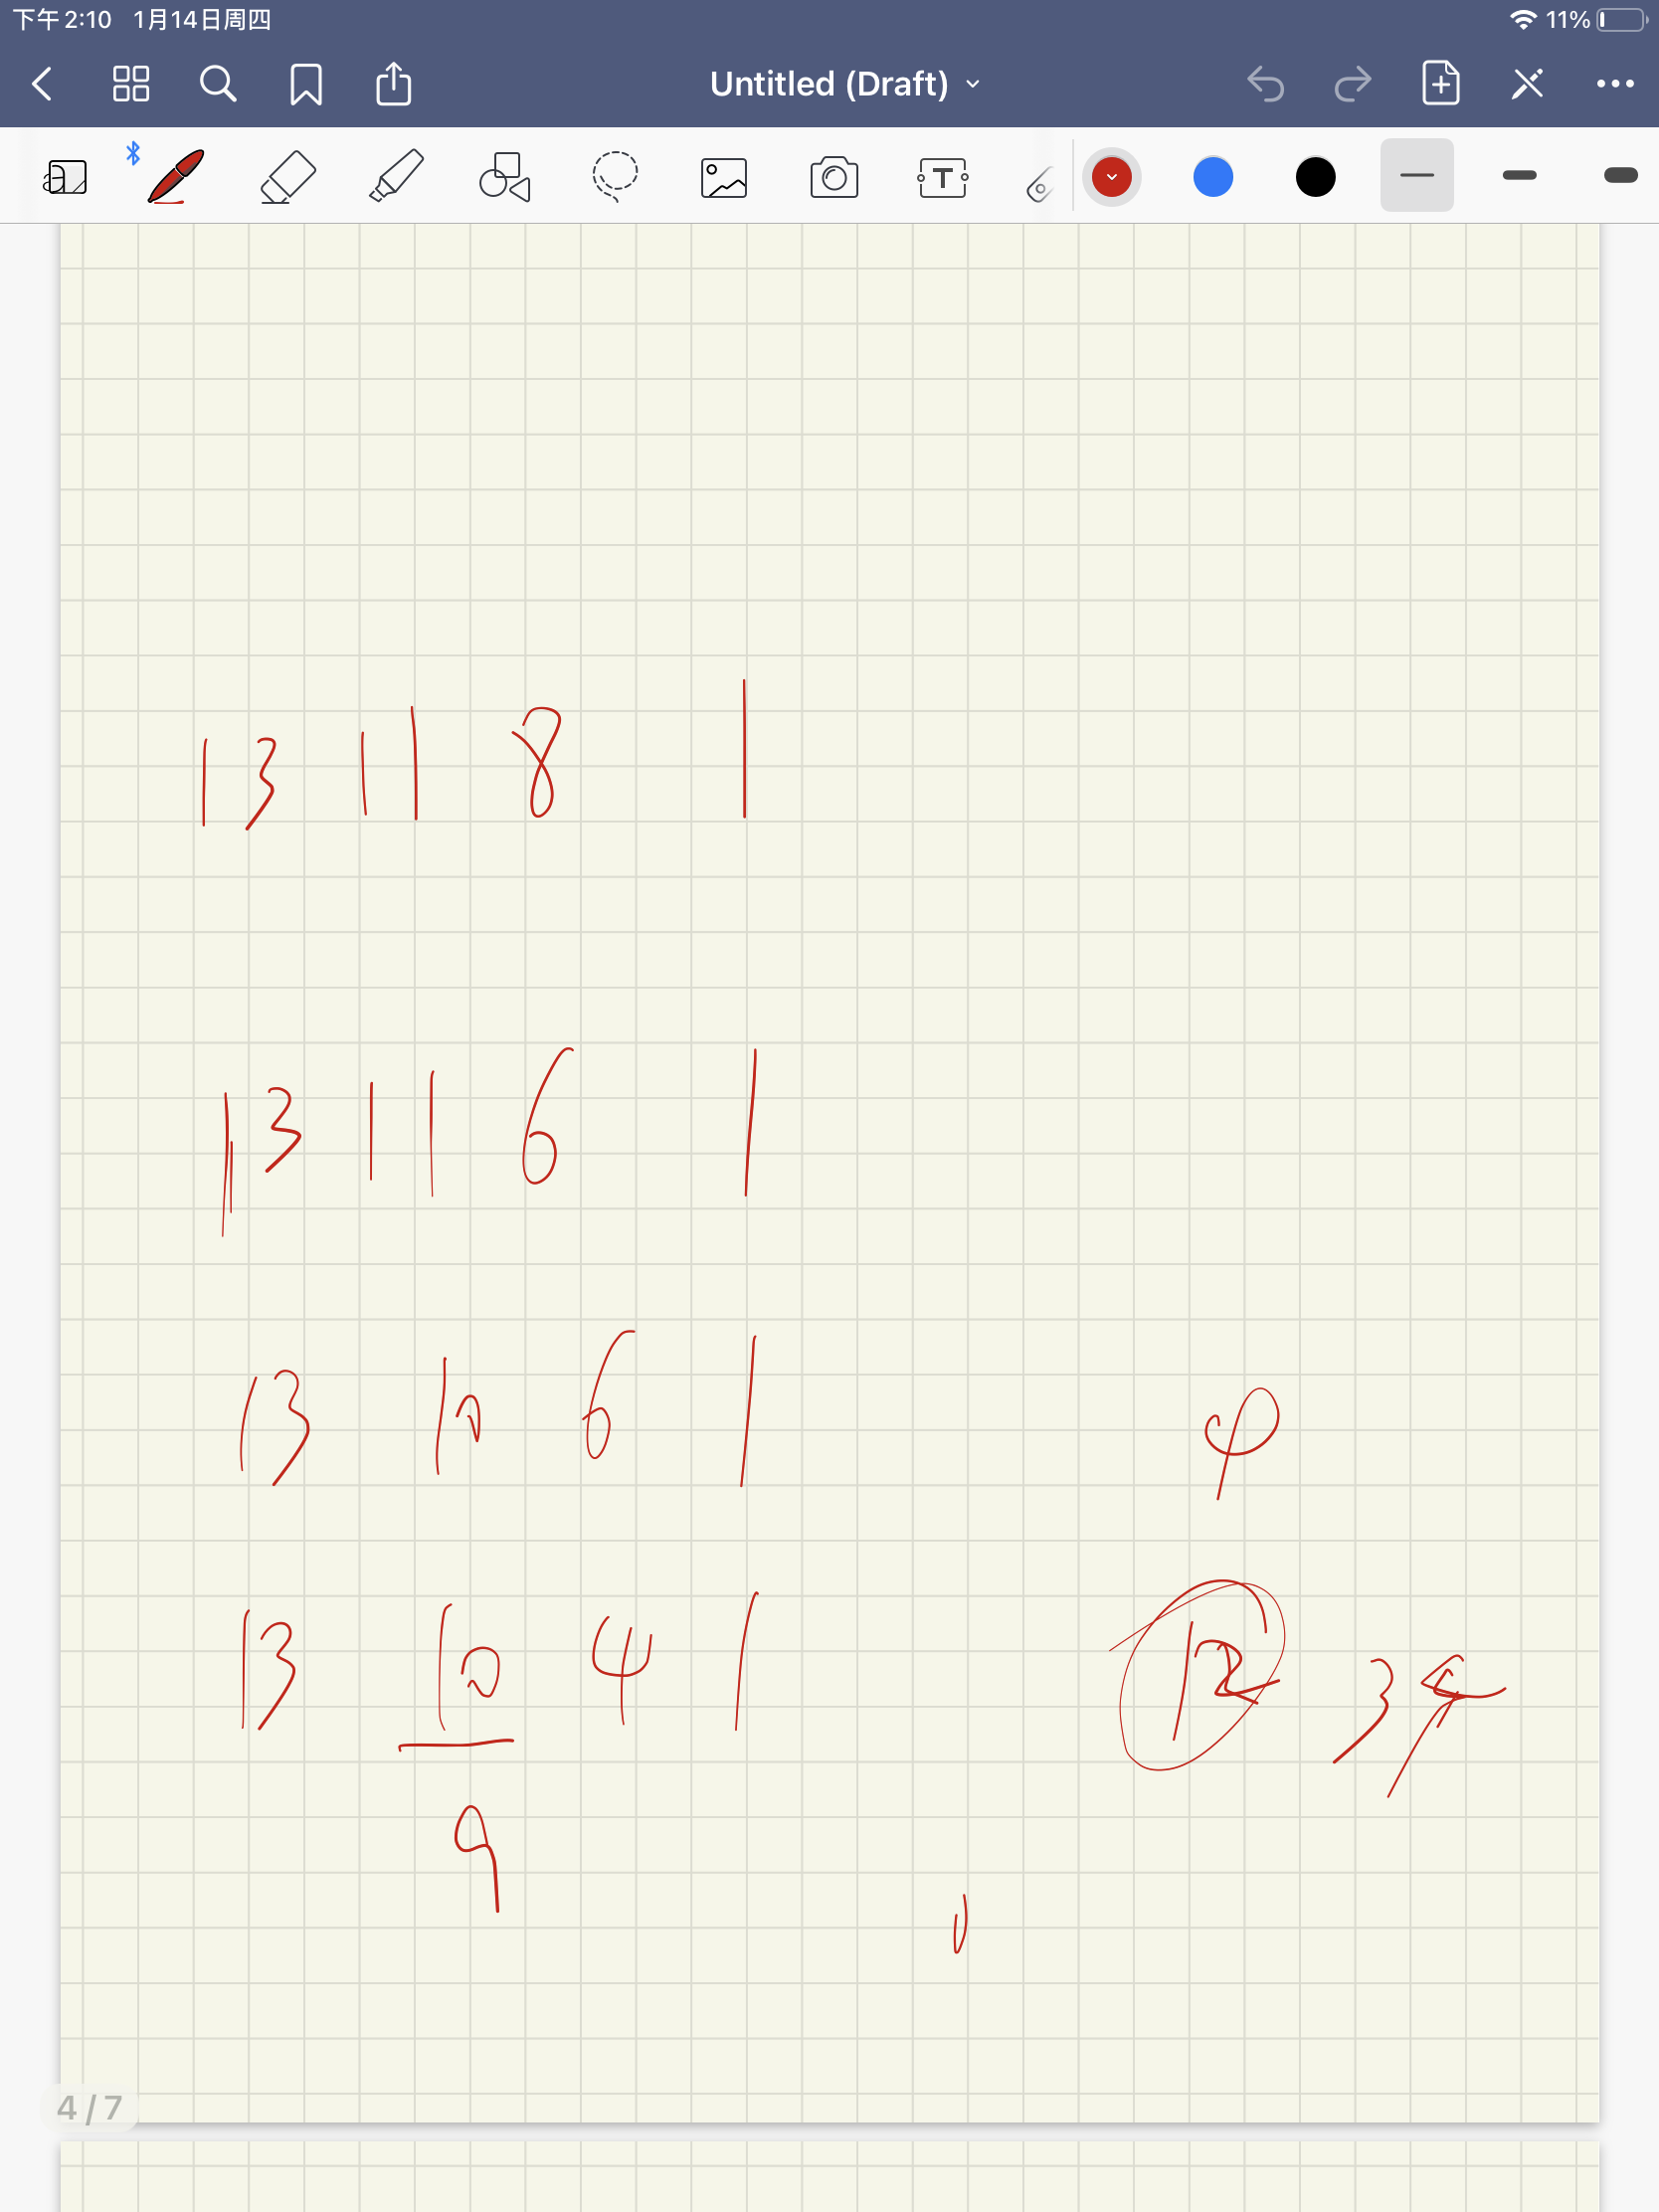 下午2:10 1月14日周四 11%
Untitled (Draft)
T
13 11 8 1
13 11 6 1
13 10 6 1 φ
13 10 4 1 12 3
9
0
4 / 7